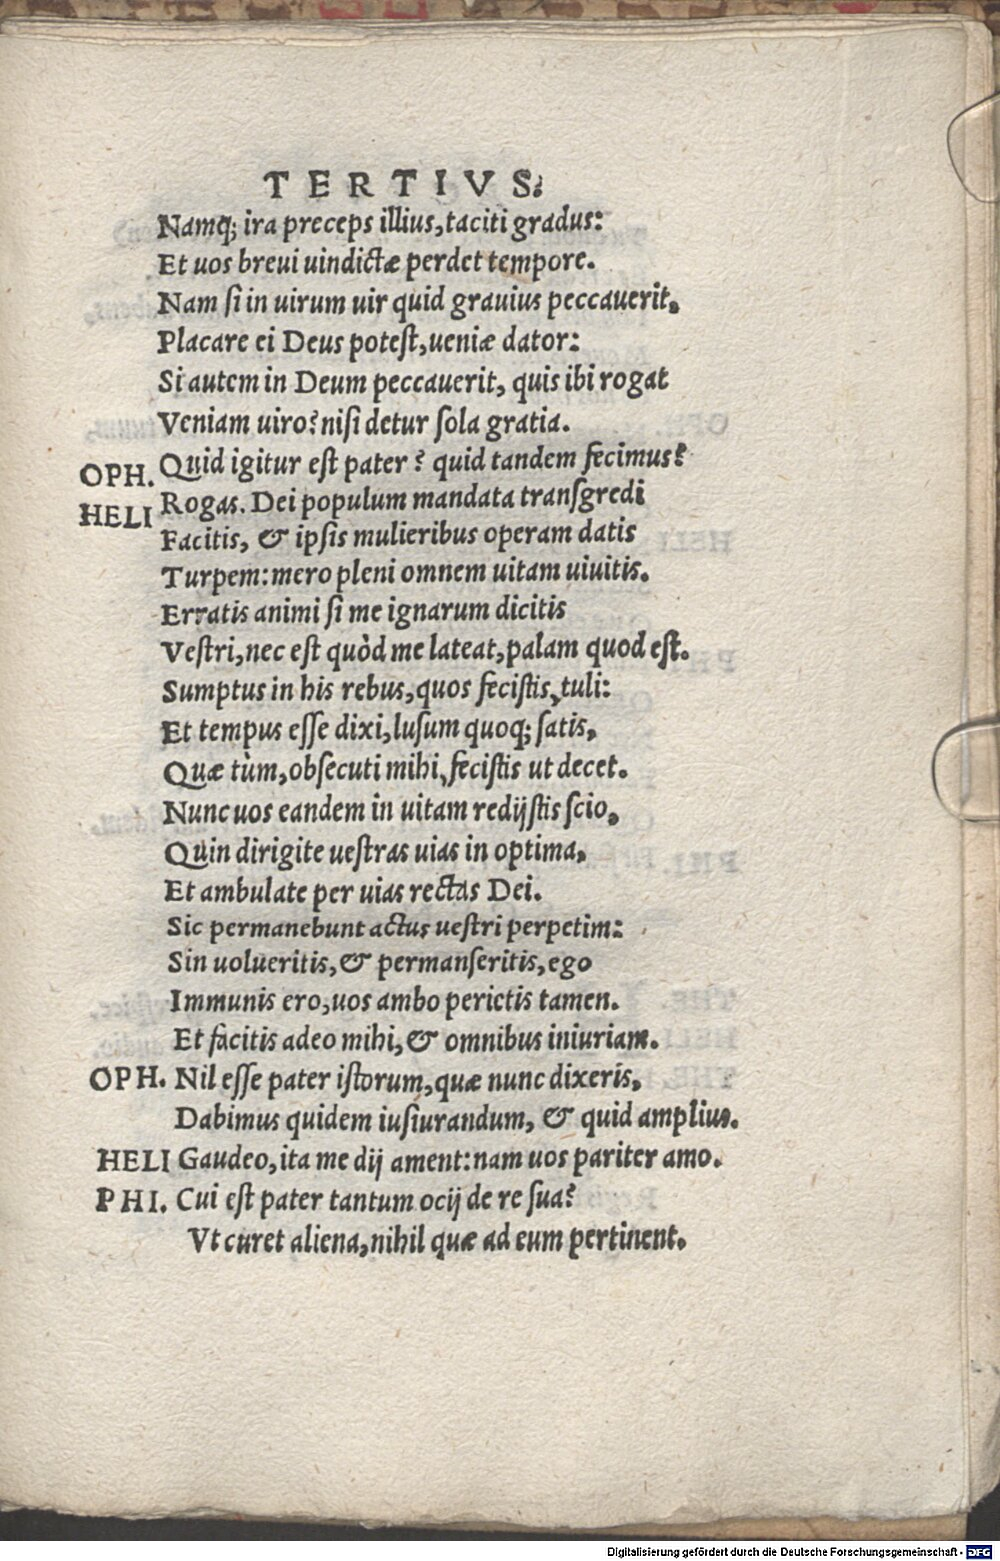 TERTIVS.
Namq; ira preceps illius, taciti gradus:
Et uos breui uindictæ perdet tempore.
Nam si in uirum uir quid grauius peccauerit,
Placare ei Deus potest, ueniæ dator:
Si autem in Deum peccauerit, quis ibi rogat
Veniam uiro? nisi detur sola gratia.
OPH. Quid igitur est pater? quid tandem fecimus?
HELI Rogas. Dei populum mandata transgredi
Facitis, & ipsis mulieribus operam datis
Turpem: mero pleni omnem uitam uiuitis.
Erratis animi si me ignarum dicitis
Vestri, nec est quòd me lateat, palam quod est.
Sumptus in his rebus, quos fecistis, tuli:
Et tempus esse dixi, lusum quoq; satis,
Quæ tùm, obsecuti mihi, fecistis ut decet.
Nunc uos eandem in uitam redijstis scio,
Quin dirigite uestras uias in optima,
Et ambulate per uias rectas Dei.
Sic permanebunt actus uestri perpetim:
Sin uolueritis, & permanseritis, ego
Immunis ero, uos ambo perictis tamen.
Et facitis adeo mihi, & omnibus iniuriam.
OPH. Nil esse pater istorum, quæ nunc dixeris,
Dabimus quidem iusiurandum, & quid amplius.
HELI Gaudeo, ita me dij ament: nam uos pariter amo.
PHI. Cui est pater tantum ocij de re sua?
Vt curet aliena, nihil quæ ad eum pertinent.
Digitalisierung gefördert durch die Deutsche Forschungsgemeinschaft - DFG